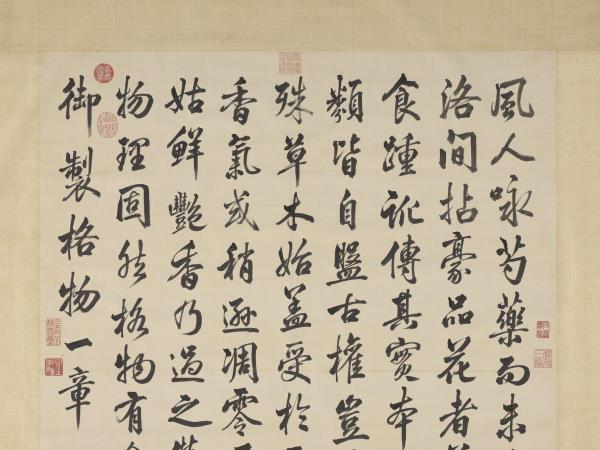 風人咏芍藥而未
洛間拈豪品花者
食踵訛傳其實本
類皆自古權豈
殊草木始蓋受於
香氣或稍遜凋零
姑鮮豔香乃過之
物理固然格物有
御製格物一章